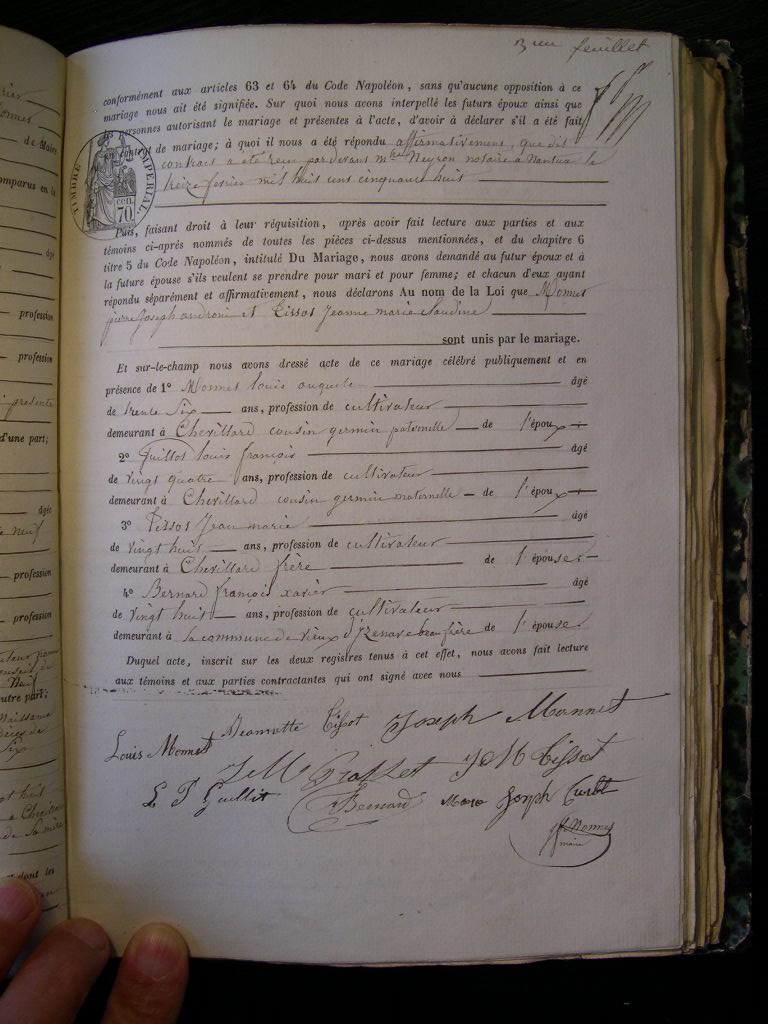 3me feuillet
conformément aux articles 63 et 64 du Code Napoléon, sans qu'aucune opposition à ce
mariage nous ait été signifiée. Sur quoi nous avons interpellé les futurs époux ainsi que
personnes autorisant le mariage et présentes à l'acte, d'avoir à déclarer s'il a été fait
contrat de mariage; à quoi il nous a été répondu affirmativement, que dit
contrat a été reçu par devant mtre Neyron notaire a Nantua le
treize fevrier mil huit cent cinquante huit
TIMBRE IMPERIAL
70 cen.
Puis, faisant droit à leur réquisition, après avoir fait lecture aux parties et aux
témoins ci-après nommés de toutes les pièces ci-dessus mentionnées, et du chapitre 6
titre 5 du Code Napoléon, intitulé Du Mariage, nous avons demandé au futur époux et à
la future épouse s'ils veulent se prendre pour mari et pour femme; et chacun d'eux ayant
répondu séparément et affirmativement, nous déclarons Au nom de la Loi que Monnet
pierre Joseph androni et Tissot Jeanne marie claudine
sont unis par le mariage.
Et sur-le-champ nous avons dressé acte de ce mariage célébré publiquement et en
présence de 1º Monnet louis auguste âgé
de trente Six ans, profession de cultivateur
demeurant à Chevillard cousin germin paternelle de l'époux
2º Guillot louis françois âgé
de vingt quatre ans, profession de cultivateur
demeurant à Chevillard cousin germin maternelle de l'époux
3º Tissot Jean marie âgé
de vingt huit ans, profession de cultivateur
demeurant à Chevillard frère de l'épouse
4º Bernard françois xavier âgé
de vingt huit ans, profession de cultivateur
demeurant à la commune de vieux d'Izenave beau frère de l'épouse
Duquel acte, inscrit sur les deux registres tenus à cet effet, nous avons fait lecture
aux témoins et aux parties contractantes qui ont signé avec nous
Jeannette Tissot Joseph Monnet
Louis Monnet
J M Tissot
L F Guillot Bernard Joseph
Monnet
maire